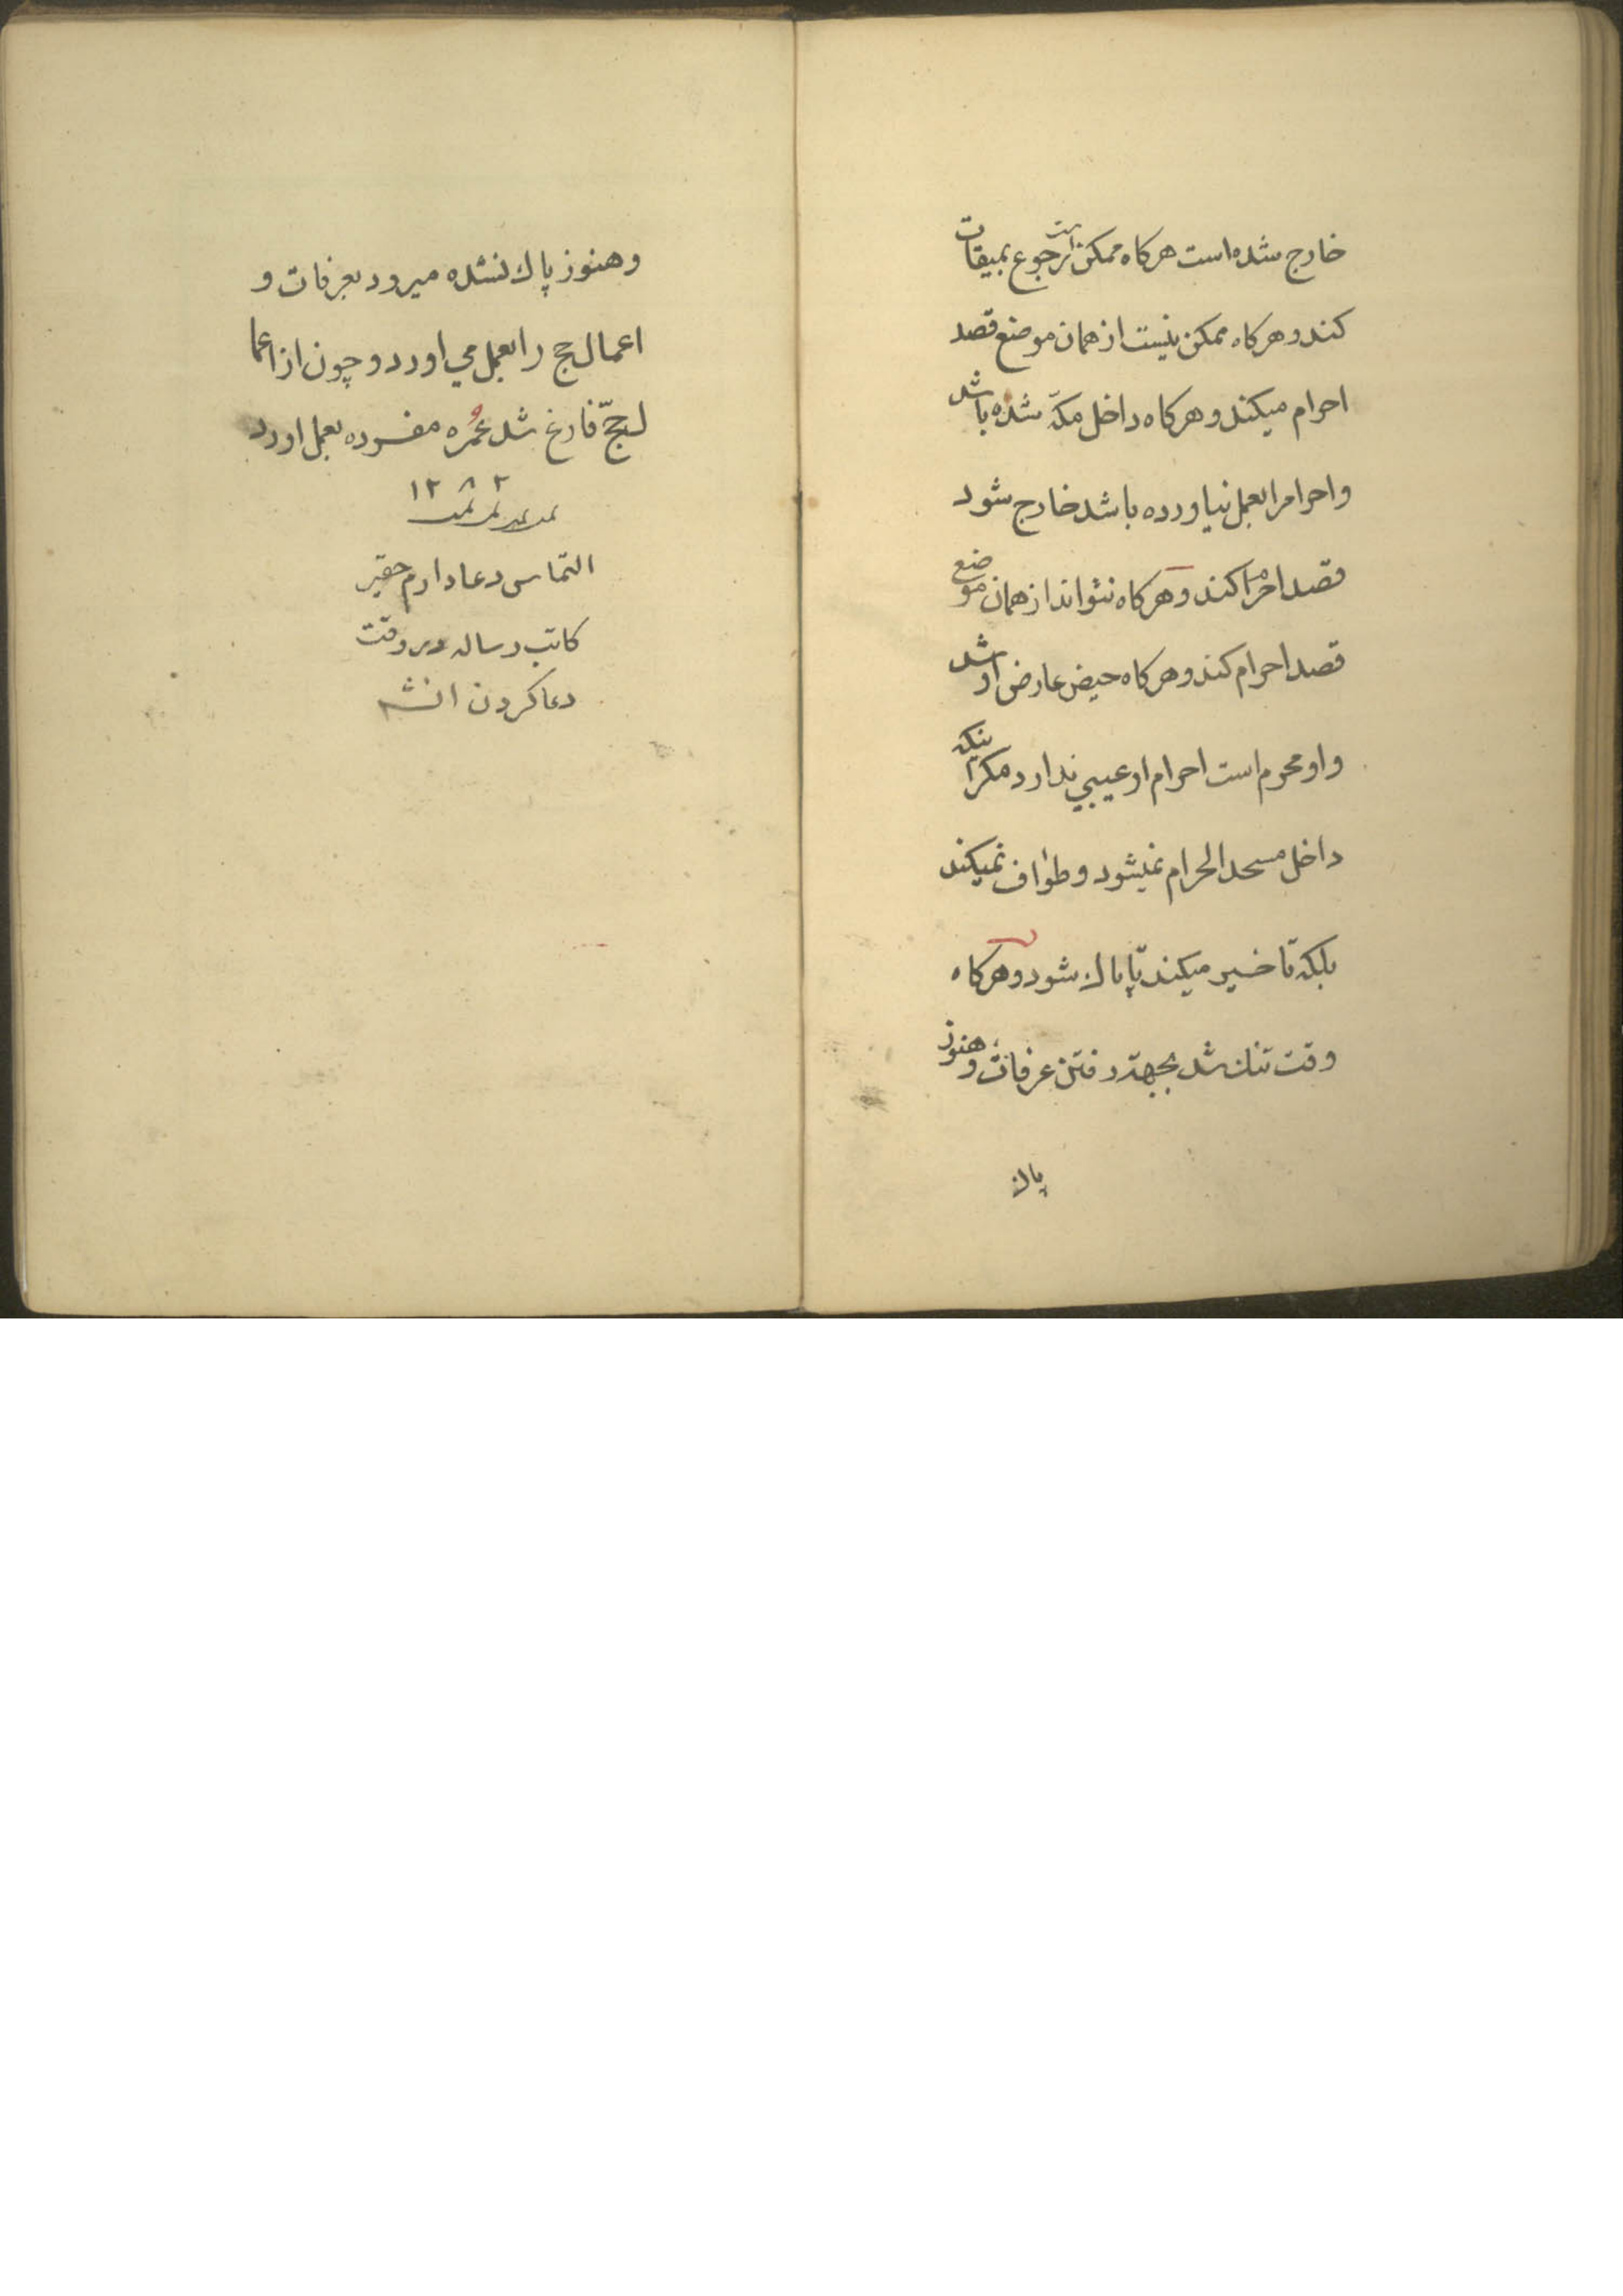 خارج شده است هرکاه ممکن است رجوع بمیقات
کند و هرکاه ممکن نیست از همان موضع قصد
احرام میکند و هرکاه داخل مکّه شده باشد
و احرام را بعمل نیاورده باشد خارج شود
قصد احرام کند و هرکاه نتواند از همان موضع
قصد احرام کند و هرکاه حیض عارض او شد
و او محرم است احرام او عیبی ندارد مکر اینکه
داخل مسجد الحرام نمیشود و طواف نمیکند
بلکه تاخیر میکند تا پاك شود و هرکاه
وقت تنك شد بجهة رفتن عرفات و هنوز
پاك
و هنوز پاك نشده میرود بعرفات و
اعمال حج را بعمل می اورد و چون از اعما
ل حجّ فارغ شد عُمره مفرده بعمل اورد
۱۲۸۲
التماس دعا دارم حقیر
کاتب رساله در وقت
دعا کردن انشه